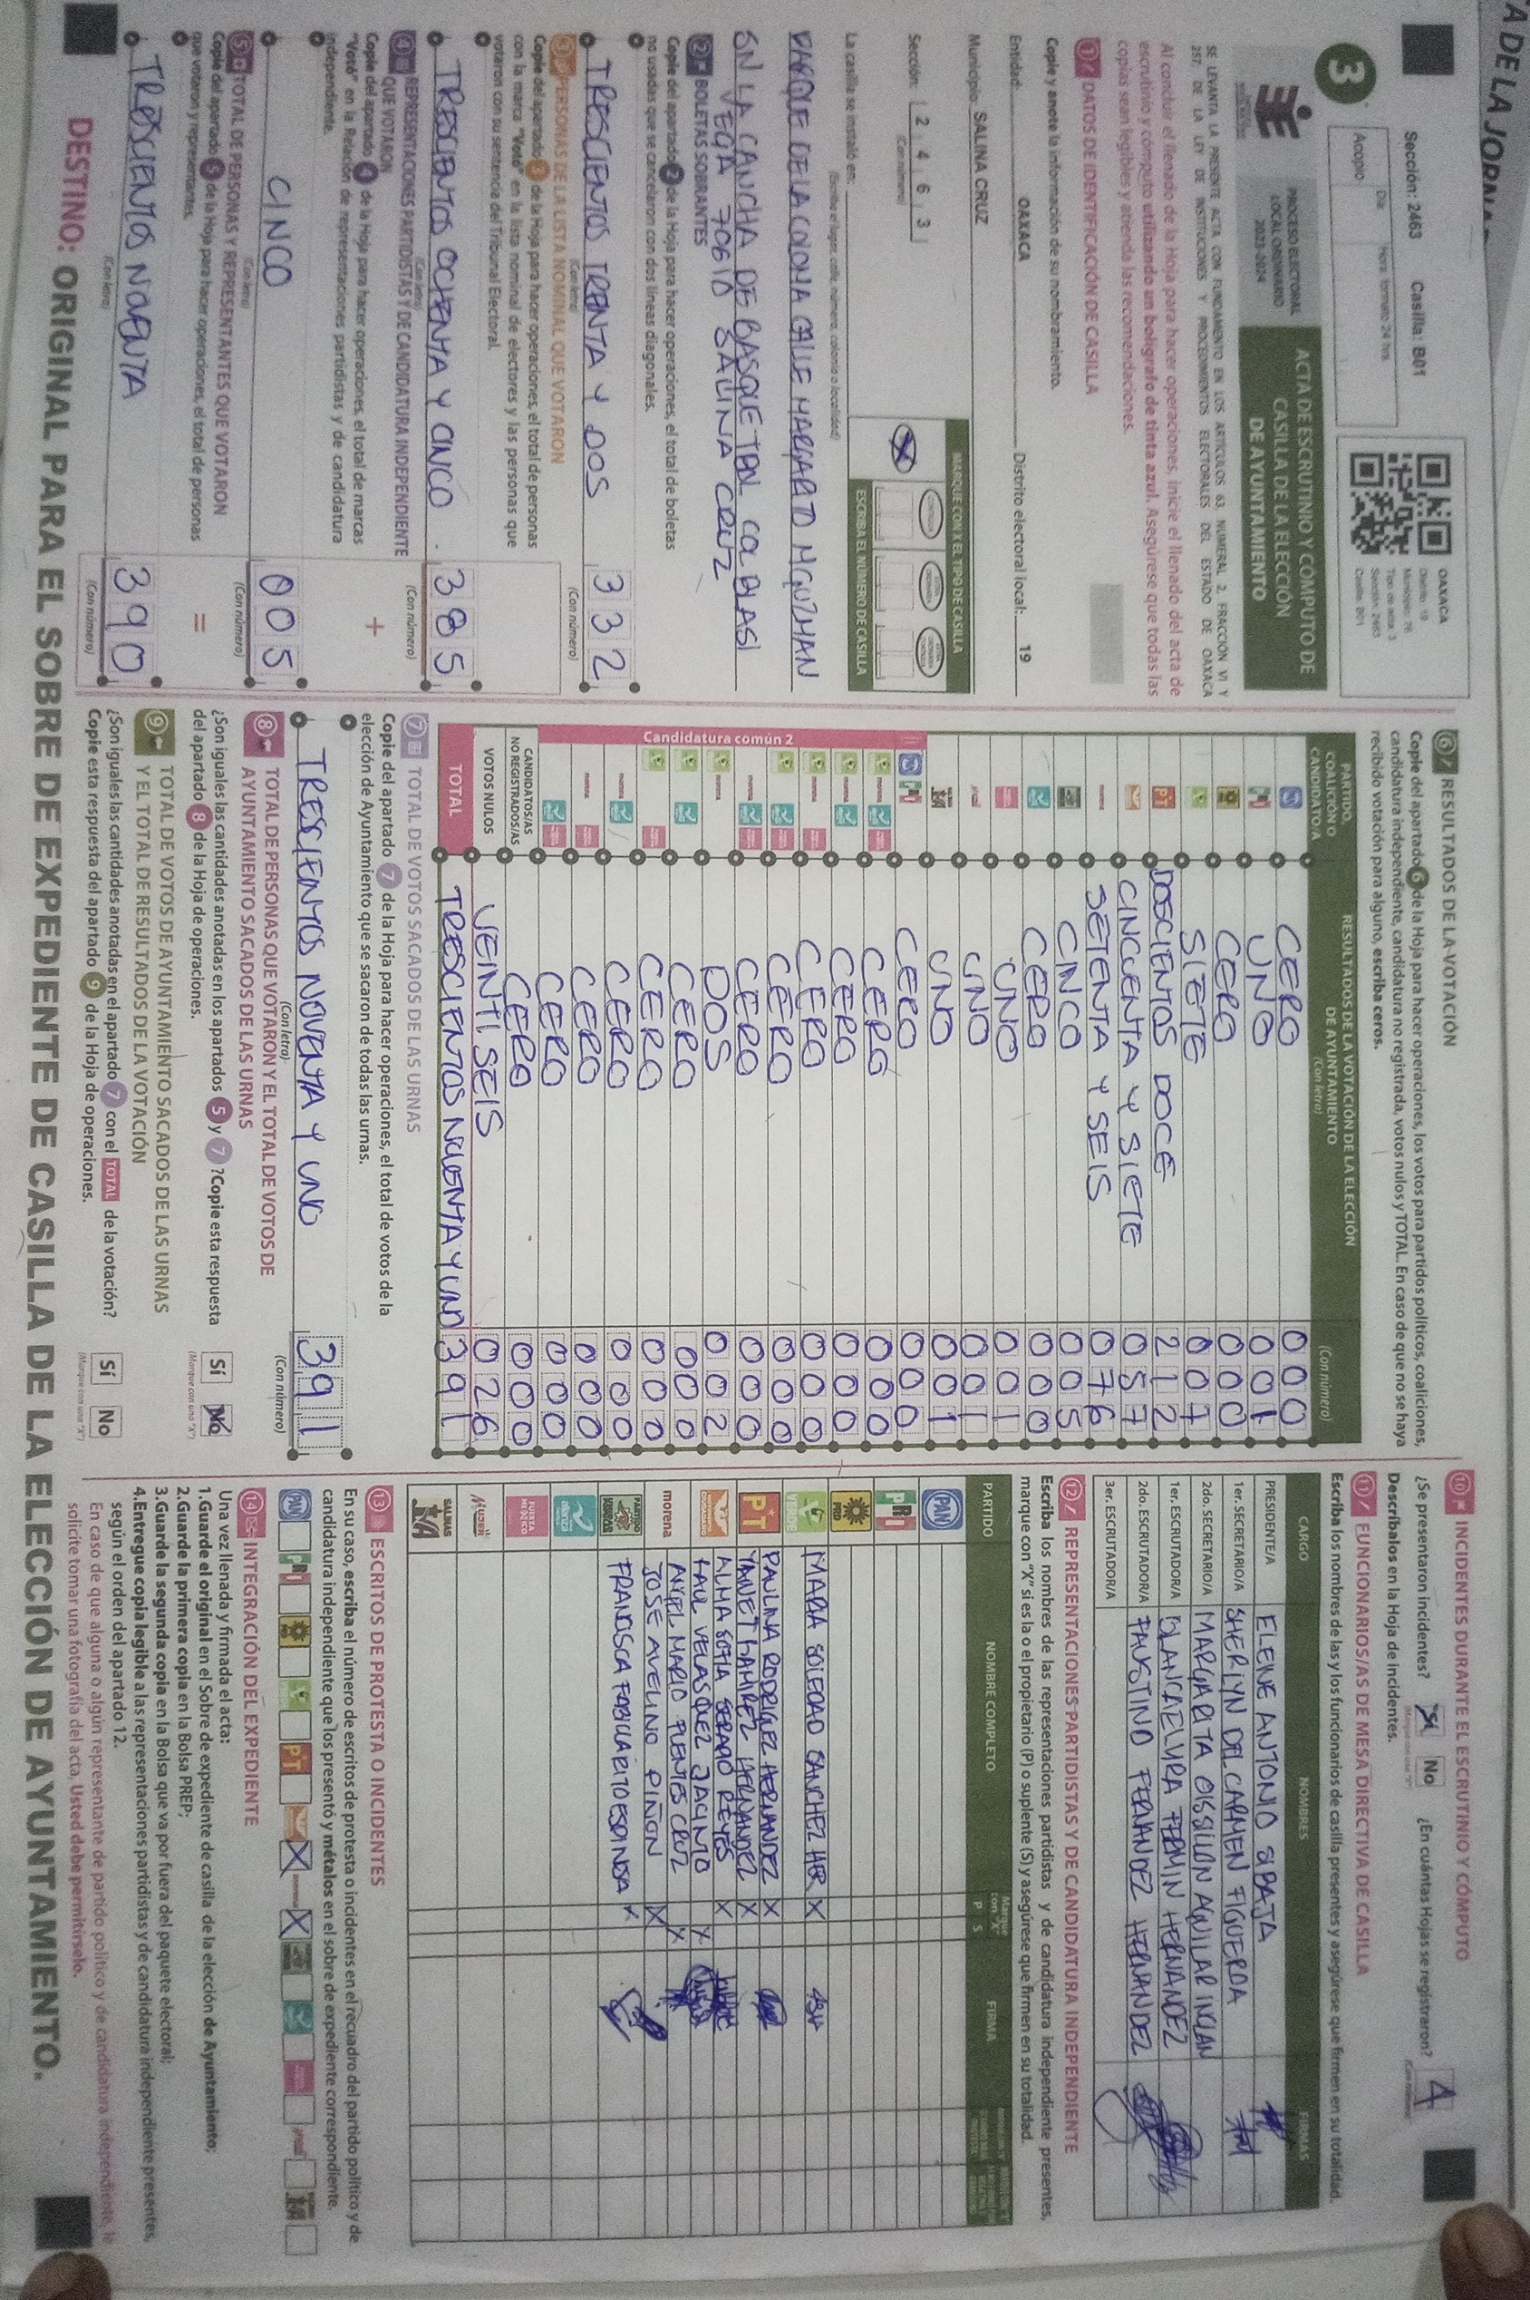 A DE LA JORNA
Sección: 2463 Casilla: B01
Día Hora: formato 24 hrs.
Acopio:
OAXACA
Distrito: 19
Municipio: 78
Tipo de acta: 3
Sección: 2463
Casilla: B01
3
PROCESO ELECTORAL
LOCAL ORDINARIO
2023-2024
ACTA DE ESCRUTINIO Y CÓMPUTO DE
CASILLA DE LA ELECCIÓN
DE AYUNTAMIENTO
SE LEVANTA LA PRESENTE ACTA CON FUNDAMENTO EN LOS ARTÍCULOS 63, NUMERAL 2, FRACCIÓN VI Y
257, DE LA LEY DE INSTITUCIONES Y PROCEDIMIENTOS ELECTORALES DEL ESTADO DE OAXACA
Al concluir el llenado de la Hoja para hacer operaciones, inicie el llenado del acta de
escrutinio y cómputo utilizando un bolígrafo de tinta azul. Asegúrese que todas las
copias sean legibles y atienda las recomendaciones.
1 DATOS DE IDENTIFICACIÓN DE CASILLA
Copie y anote la información de su nombramiento.
Entidad: OAXACA Distrito electoral local: 19
Municipio: SALINA CRUZ
Sección: 2 4 6 3
(Con número)
MARQUE CON X EL TIPO DE CASILLA
X
ESCRIBA EL NÚMERO DE CASILLA
La casilla se instaló en:
(Escriba el lugar, calle, número, colonia o localidad)
PARQUE DE LA COLONIA CALLE MARGARITO M GUZMAN
SN LA CANCHA DE BASQUETBOL COL BLASI
VEGA 70610 SALINA CRUZ
2 BOLETAS SOBRANTES
Copie del apartado 2 de la Hoja para hacer operaciones, el total de boletas
no usadas que se cancelaron con dos líneas diagonales.
TRESCIENTOS TRENTA Y DOS 332
(Con letra) (Con número)
3 PERSONAS DE LA LISTA NOMINAL QUE VOTARON
Copie del apartado 3 de la Hoja para hacer operaciones, el total de personas
con la marca "Votó" en la lista nominal de electores y las personas que
votaron con su sentencia del Tribunal Electoral.
TRESCIENTOS OCHENTA Y CINCO . 385
(Con letra) (Con número)
4 REPRESENTACIONES PARTIDISTAS Y DE CANDIDATURA INDEPENDIENTE
QUE VOTARON
Copie del apartado 4 de la Hoja para hacer operaciones, el total de marcas
"Votó" en la Relación de representaciones partidistas y de candidatura
independiente.
+
CINCO 005
(Con letra) (Con número)
5 TOTAL DE PERSONAS Y REPRESENTANTES QUE VOTARON
Copie del apartado 5 de la Hoja para hacer operaciones, el total de personas
que votaron y representantes.
=
TRESCIENTOS NOVENTA 390
(Con letra) (Con número)
6 RESULTADOS DE LA VOTACIÓN
Copie del apartado 6 de la Hoja para hacer operaciones, los votos para partidos políticos, coaliciones,
candidatura independiente, candidatura no registrada, votos nulos y TOTAL. En caso de que no se haya
recibido votación para alguno, escriba ceros.
PARTIDO,
COALICIÓN O
CANDIDATO/A
RESULTADOS DE LA VOTACIÓN DE LA ELECCIÓN
DE AYUNTAMIENTO
(Con letra) (Con número)
CERO 000
UNO 001
CERO 000
SIETE 007
DOSCIENTOS DOCE 212
CINCUENTA Y SIETE 057
SETENTA Y SEIS 076
CINCO 005
CERO 000
UNO 001
UNO 001
UNO 001
CERO 000
CERO 000
CERO 000
CERO 000
CERO 000
CERO 000
DOS 002
CERO 000
CERO 000
CERO 000
CERO 000
CERO 000
Candidatura común 2
CANDIDATOS/AS
NO REGISTRADOS/AS CERO 000
VOTOS NULOS VEINTI SEIS 026
TOTAL TRESCIENTOS NOVENTA Y UNO 391
7 TOTAL DE VOTOS SACADOS DE LAS URNAS
Copie del apartado 7 de la Hoja para hacer operaciones, el total de votos de la
elección de Ayuntamiento que se sacaron de todas las urnas.
TRESCIENTOS NOVENTA Y UNO 391
(Con letra) (Con número)
8 TOTAL DE PERSONAS QUE VOTARON Y EL TOTAL DE VOTOS DE
AYUNTAMIENTO SACADOS DE LAS URNAS
¿Son iguales las cantidades anotadas en los apartados 5 y 7 ? Copie esta respuesta
del apartado 8 de la Hoja de operaciones.
Sí No
(Marque con una "X")
9 TOTAL DE VOTOS DE AYUNTAMIENTO SACADOS DE LAS URNAS
Y EL TOTAL DE RESULTADOS DE LA VOTACIÓN
¿Son iguales las cantidades anotadas en el apartado 7 con el TOTAL de la votación?
Copie esta respuesta del apartado 9 de la Hoja de operaciones.
Sí No
(Marque con una "X")
10 INCIDENTES DURANTE EL ESCRUTINIO Y CÓMPUTO
¿Se presentaron incidentes? Sí No ¿En cuántas Hojas se registraron? 4
Descríbalos en la Hoja de incidentes.
11 FUNCIONARIOS/AS DE MESA DIRECTIVA DE CASILLA
Escriba los nombres de las y los funcionarios de casilla presentes y asegúrese que firmen en su totalidad.
CARGO NOMBRES FIRMAS
PRESIDENTE/A ELEINE ANTONIO SIBAJA
1er. SECRETARIO/A SHERLYN DEL CARMEN FIGUEROA
2do. SECRETARIO/A MARGARITA GISSILON AQUILAR INCLAN
1er. ESCRUTADOR/A BLANCA ELVIRA FERMIN HERNANDEZ
2do. ESCRUTADOR/A FAUSTINO FERNANDEZ HERNANDEZ
3er. ESCRUTADOR/A
12 REPRESENTACIONES PARTIDISTAS Y DE CANDIDATURA INDEPENDIENTE
Escriba los nombres de las representaciones partidistas y de candidatura independiente presentes,
marque con "X" si es la o el propietario (P) o suplente (S) y asegúrese que firmen en su totalidad.
PARTIDO NOMBRE COMPLETO Marque con "X" P S FIRMA
PAN
PRI
PRD
VERDE MARIA SOLEDAD SANCHEZ HER X
PT PAULINA RODRIGUEZ HERNANDEZ X
YANNET RAMIREZ HERNANDEZ X
ALMA SOFIA SERRANO REYES X
RAUL VELASQUEZ JACINTO X
morena ANGEL MARIO FUENTES CRUZ X
JOSE AVELINO PIÑON X
FRANCISCA FABIOLA BRITO ESPINOSA X
alianza
FUERZA
MÉXICO
MUJER
13 ESCRITOS DE PROTESTA O INCIDENTES
En su caso, escriba el número de escritos de protesta o incidentes en el recuadro del partido político y de
candidatura independiente que los presentó y métalos en el sobre de expediente correspondiente.
PAN PRI PRD PT X morena X
14 INTEGRACIÓN DEL EXPEDIENTE
Una vez llenada y firmada el acta:
1.Guarde el original en el Sobre de expediente de casilla de la elección de Ayuntamiento;
2.Guarde la primera copia en la Bolsa PREP;
3.Guarde la segunda copia en la Bolsa que va por fuera del paquete electoral;
4.Entregue copia legible a las representaciones partidistas y de candidatura independiente presentes,
según el orden del apartado 12.
En caso de que alguna o algún representante de partido político y de candidatura independiente, le
solicite tomar una fotografía del acta, Usted debe permitírselo.
DESTINO: ORIGINAL PARA EL SOBRE DE EXPEDIENTE DE CASILLA DE LA ELECCIÓN DE AYUNTAMIENTO.